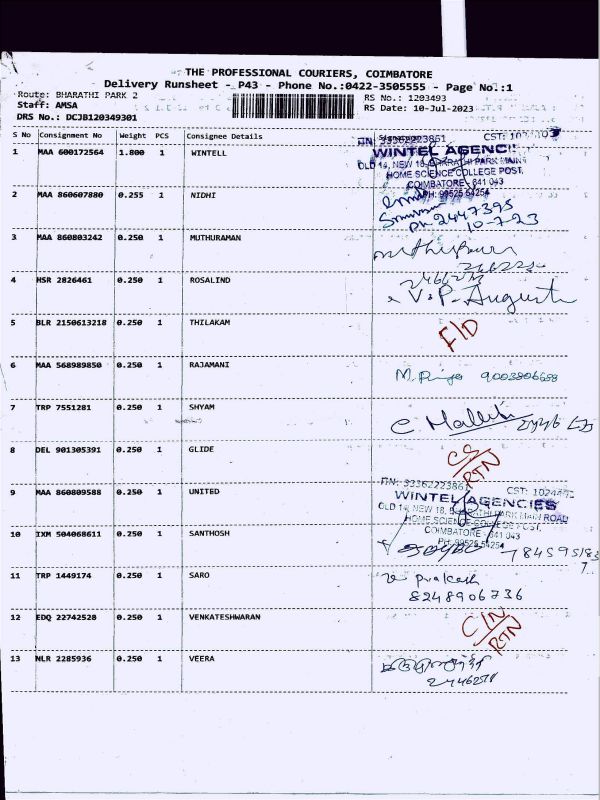 THE PROFESSIONAL COURIERS, COIMBATORE
Delivery Runsheet - P43 - Phone No.:0422-3505555 - Page No.:1
Route: BHARATHI PARK 2
RS No.: 1203493
Staff: AMSA
RS Date: 10-Jul-2023
DRS No.: DCJB120349301
S No Consignment No Weight PCS Consignee Details Signature
1 MAA 600172564 1.800 1 WINTELL
WINTEL AGENCIES
OLD 14, NEW 18, BHARATHI PARK MAIN
HOME SCIENCE COLLEGE POST,
COIMBATORE - 641 043
PH: 99525 54254
2 MAA 860607880 0.255 1 NIDHI
Ph 2447395
10-7-23
3 MAA 860803242 0.250 1 MUTHURAMAN
4 HSR 2826461 0.250 1 ROSALIND
V. P. Augusti
5 BLR 2150613218 0.250 1 THILAKAM
F/D
6 MAA 568989850 0.250 1 RAJAMANI
9003806688
7 TRP 7551281 0.250 1 SHYAM
8 DEL 901305391 0.250 1 GLIDE
CS/RTN
9 MAA 860809588 0.250 1 UNITED
WINTEL AGENCIES
OLD 14, NEW 18, BHARATHI PARK MAIN ROAD
HOME SCIENCE COLLEGE POST,
COIMBATORE - 641 043
PH: 99525 54254
10 IXM 504068611 0.250 1 SANTHOSH
11 TRP 1449174 0.250 1 SARO
Prakash
8248906736
12 EDQ 22742528 0.250 1 VENKATESHWARAN
C/N/RTN
13 NLR 2285936 0.250 1 VEERA